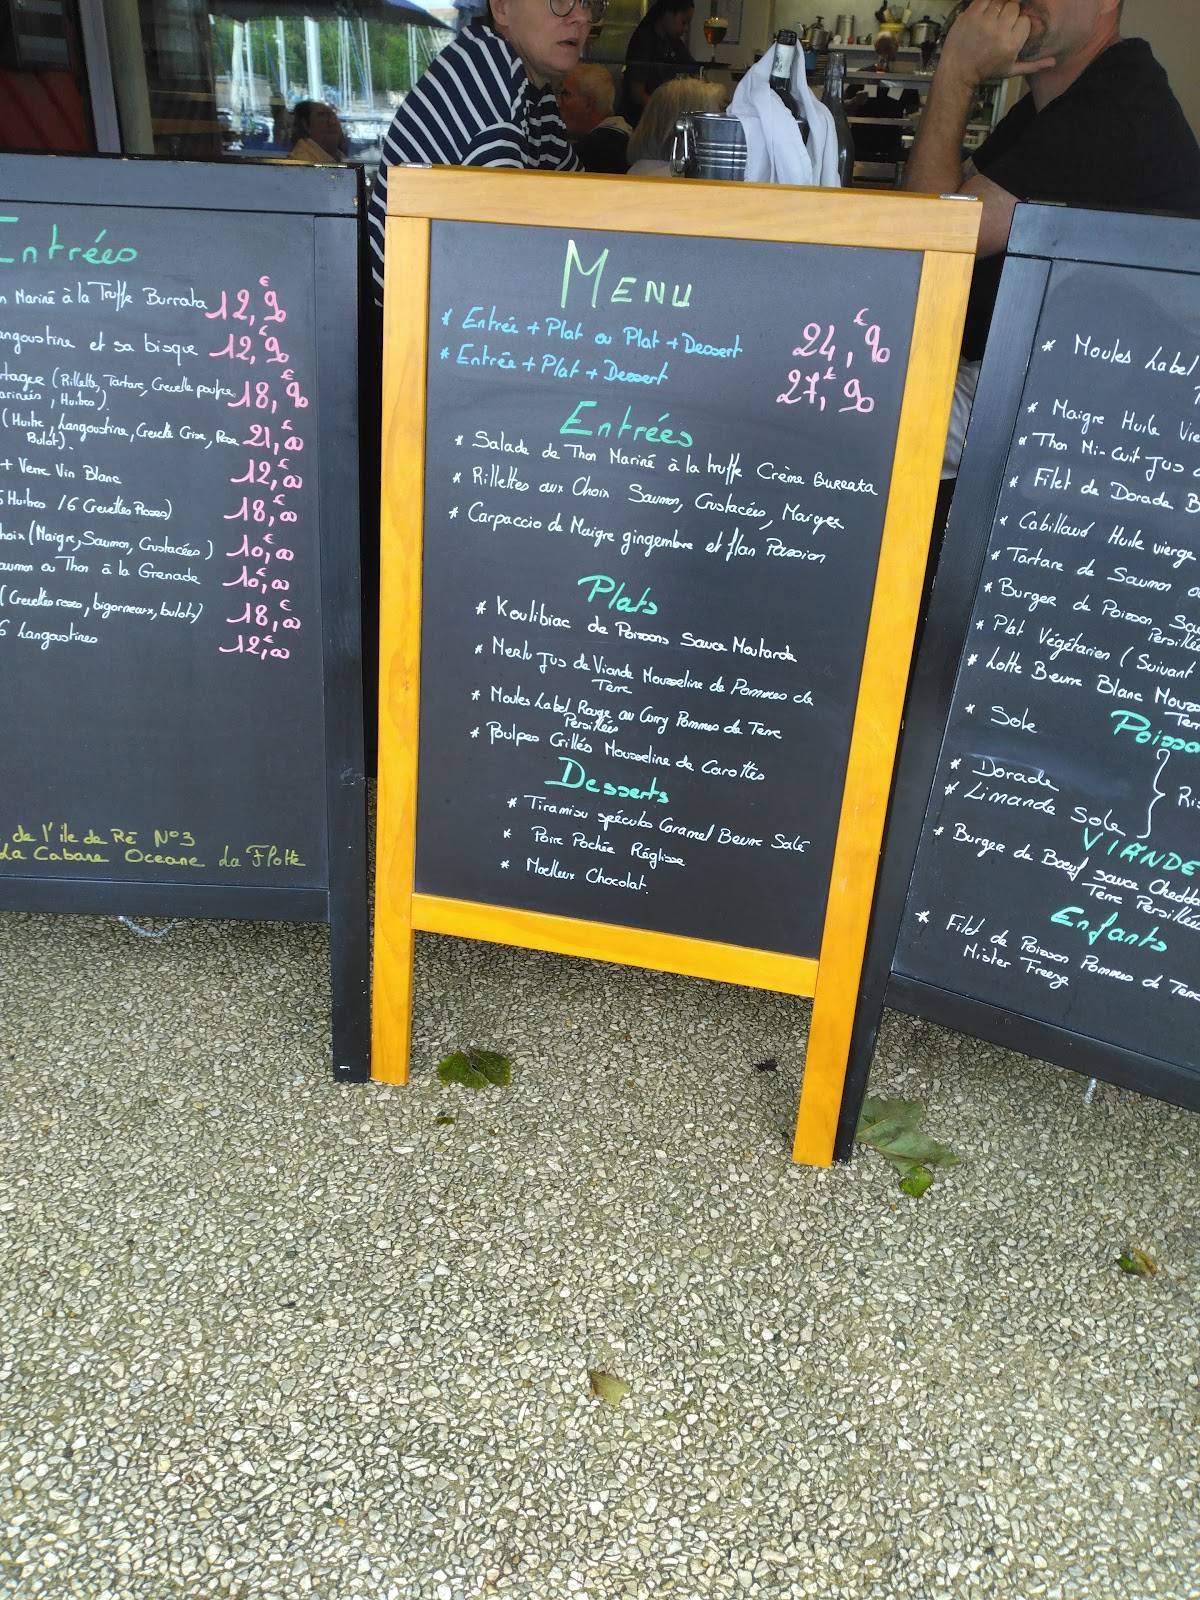 Entrées
Mariné à la Truffe Burrata 12,€90
angoustine et sa bisque 12,€90
(Rillette, Tartare, Crevette poupre 18,€90
, Huitres)
(Huitre, Langoustine, Crevette Grise, Rose 21,€00
Bulot).
+ Verre Vin Blanc 12,€00
Huitres /6 Crevettes Roses) 18,€00
(Maigre, Saumon, Crustacées) 10,€00
aumon ou Thon à la Grenade 10,€00
(Crevettes roses, bigorneaux, bulots) 18,€00
6 Langoustines 12,€00
de l'ile de Ré N°3
La Cabane Oceane La Flotte
Menu
* Entrée + Plat ou Plat + Dessert 24,€90
* Entrée + Plat + Dessert 27,€90
Entrées
* Salade de Thon Mariné à la truffe Crème Burrata
* Rillettes aux Choix Saumon, Crustacées, Maigre
* Carpaccio de Maigre gingembre et flan Passion
Plats
* Koulibiac de Poissons Sauce Moutarde
* Merlu Jus de Viande Mousseline de Pommes de
Terre
* Moules Label Rouge au Curry Pommes de Terre
Persillées
* Poulpes Grillés Mousseline de Carottes
Desserts
* Tiramisu spéculos Caramel Beurre Salé
* Poire Pochée Réglisse
* Moelleux Chocolat.
* Moules Label
* Maigre Huile Vie
* Thon Mi-Cuit Jus
* Filet de Dorade B
* Cabillaud Huile vierge
* Tartare de Saumon ou
* Burger de Poisson Sau
Persillée
* Plat Végétarien (Suivant
* Lotte Beurre Blanc Mouss
Terre
* Sole
Poisso
* Dorade
* Limande Sole } Ri
VIANDE
* Burger de Bœuf sauce Chedda
Terre Persillée
Enfants
* Filet de Poisson Pommes de Terre
Mister Freeze